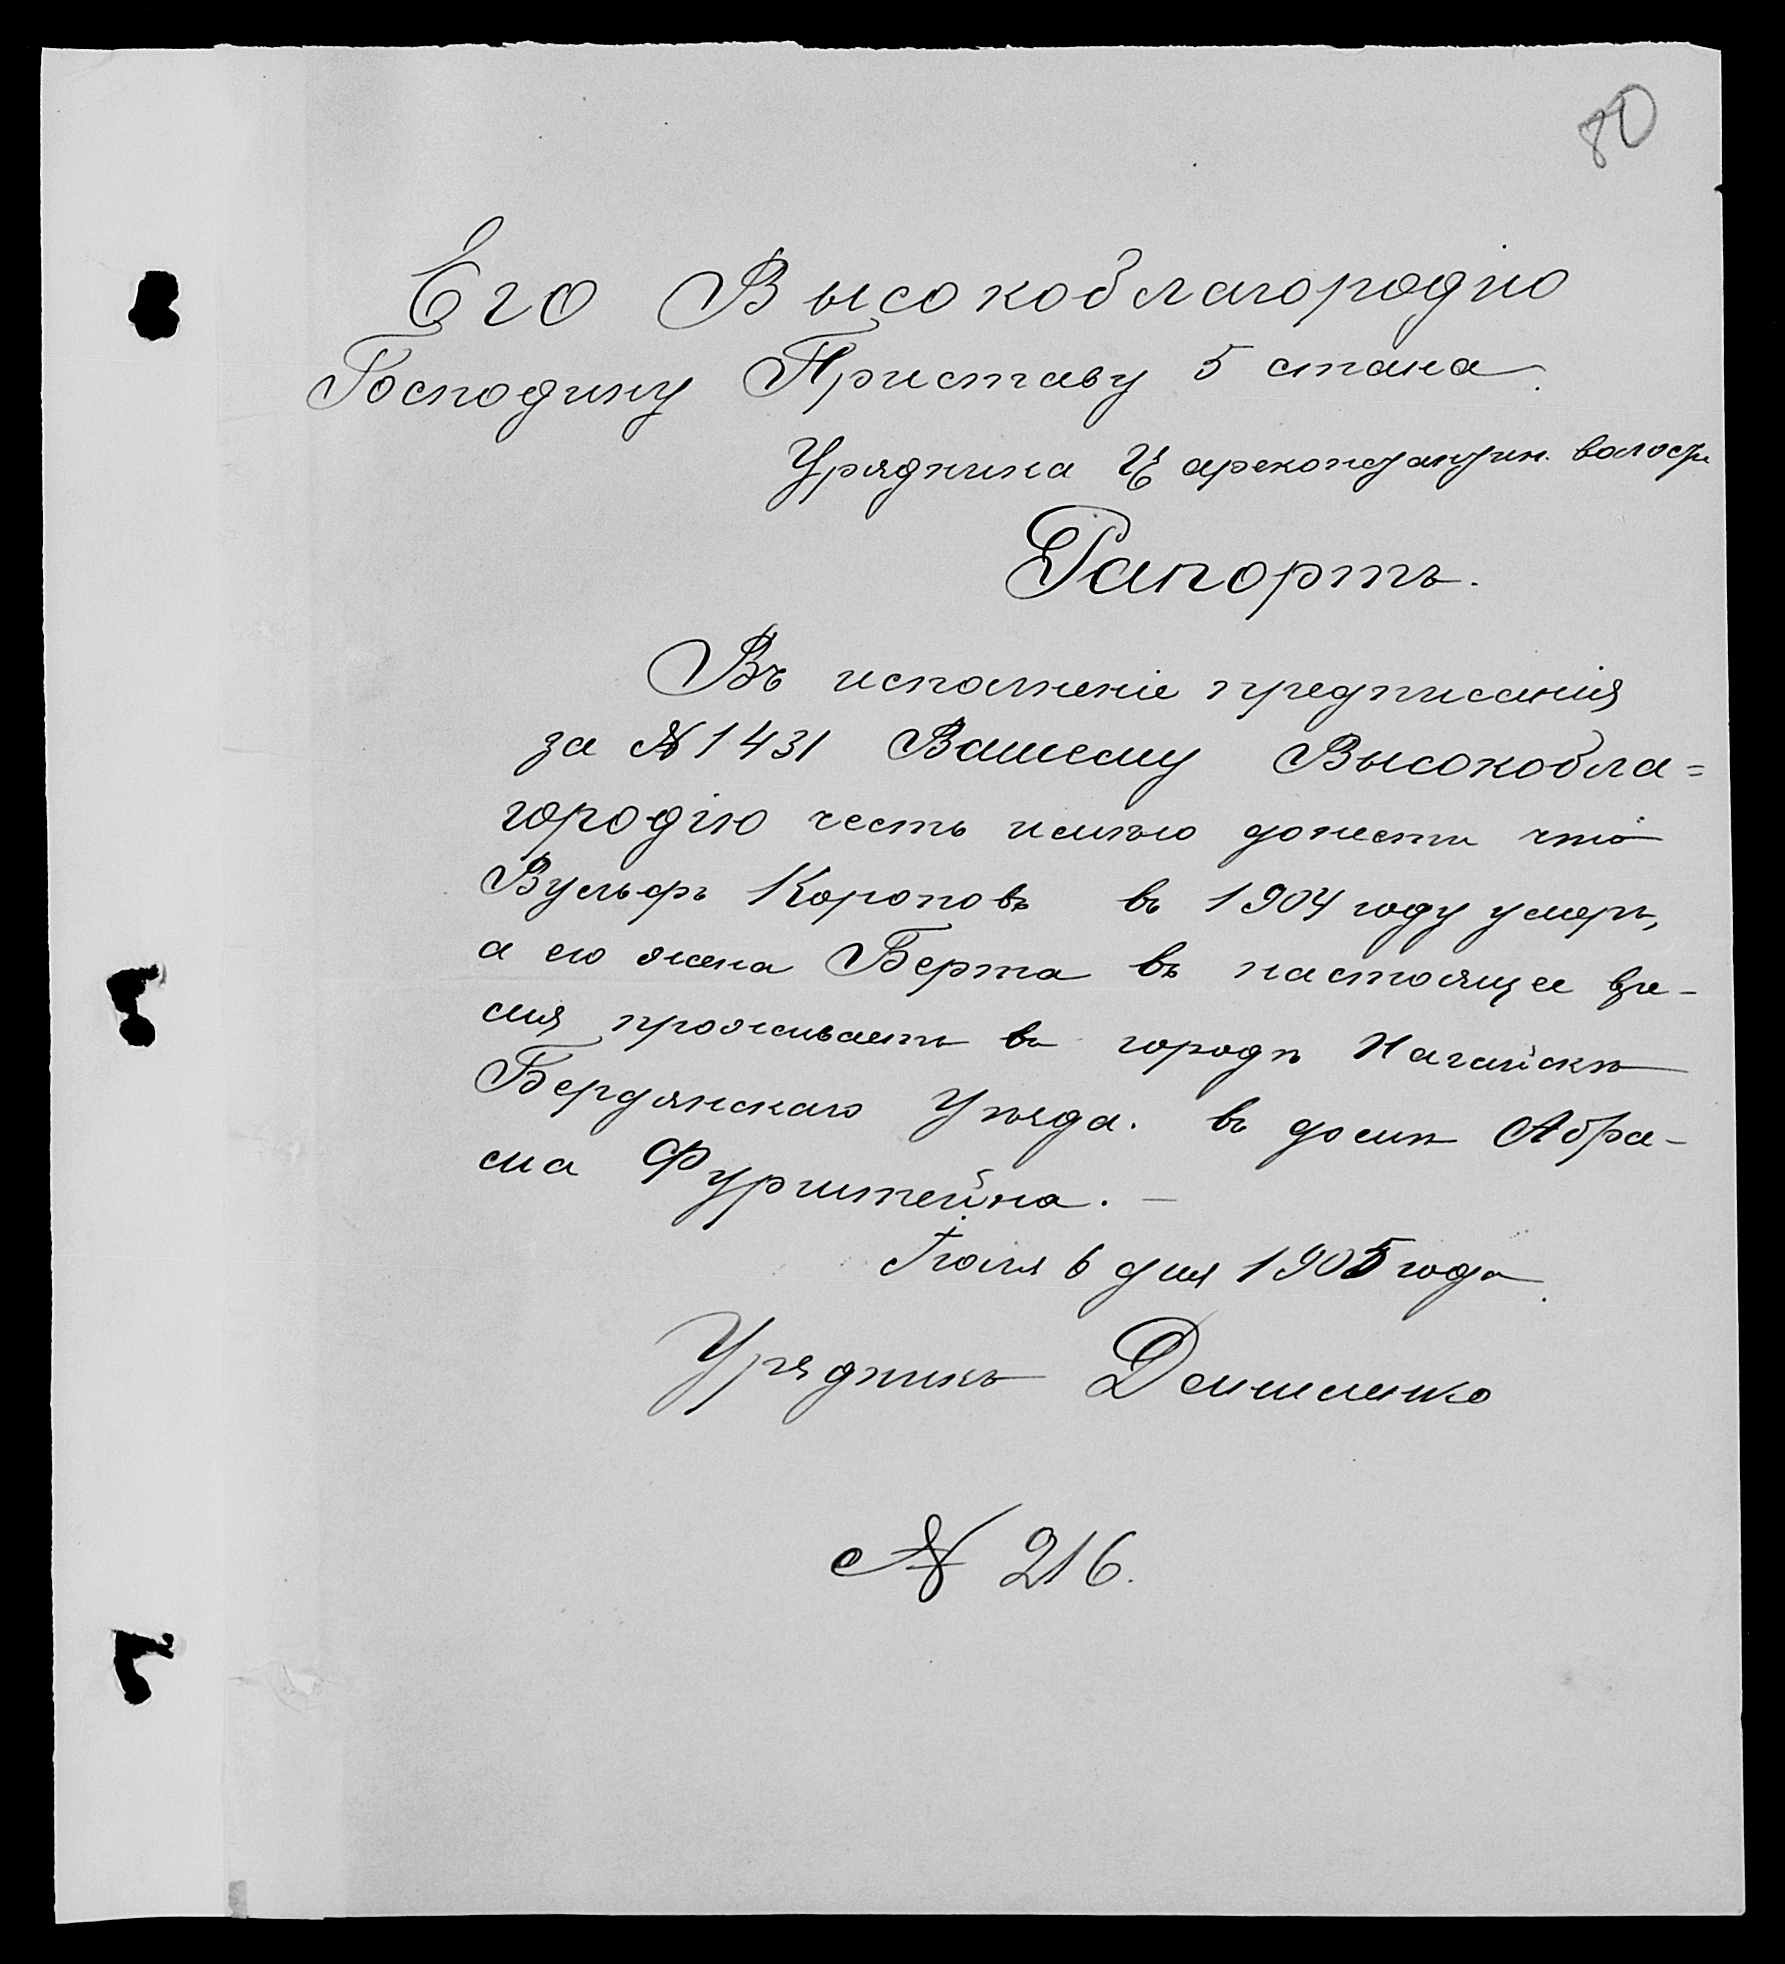 80
Его Высокоблагородію
Господину Приставу 5 стана.
Урядника Цареконстантин. волости
Рапортъ.
Въ исполненіе предписанія
за № 1431 Вашему Высокобла=
городію честь имѣю донести что
Вульфъ Короповъ въ 1904 году умеръ,
а его жена Берта въ настоящее вре-
мя проживаетъ въ городѣ Нагайскѣ
Бердянскаго Уѣзда. въ домѣ Абра-
ма Фурштейна. —
Іюля 6 дня 1905 года.
Урядникъ
№ 216.